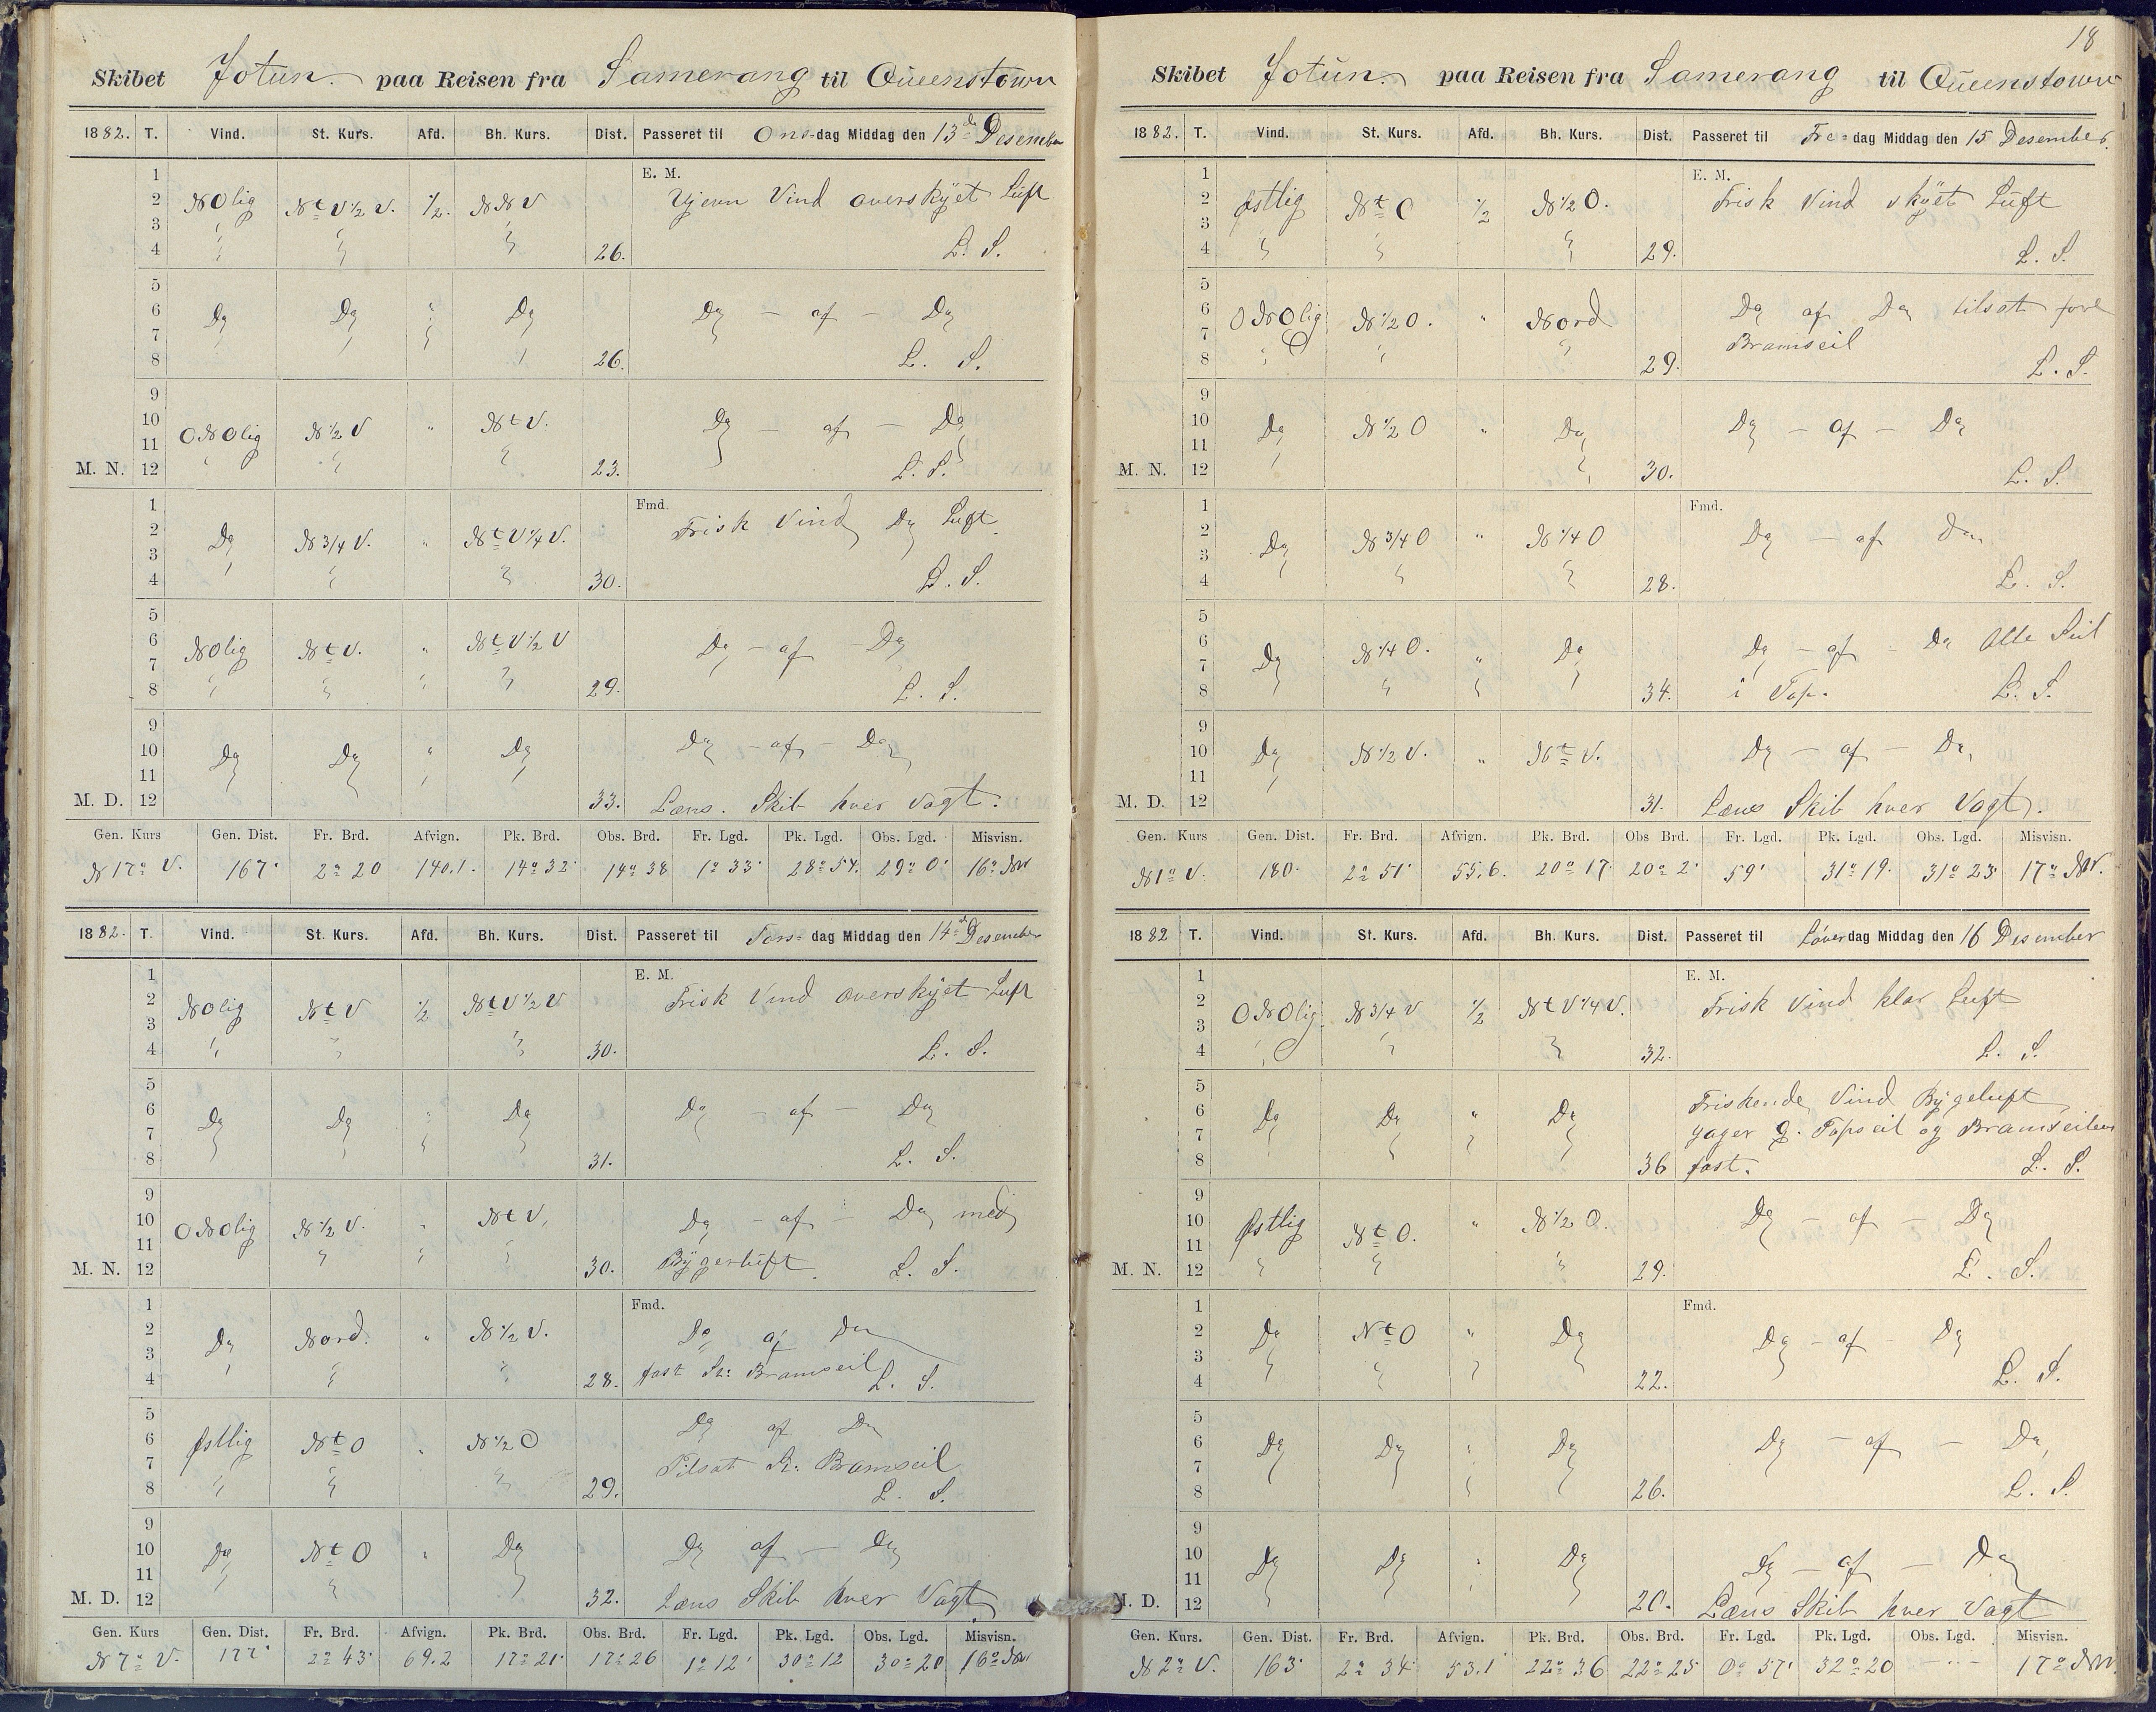 18
Skibet Jotun. paa Reisen fra Samerang til Queenstown
1882. T. Vind. St. Kurs. Afd. Bh. Kurs. Dist. Passeret til Ons-dag Middag den 13de Desember
E. M.
1
2 NOlig NtV½V. ½. NNV Ujevn Vind overskyet Luft
3
4 26. L. S.
5
6 Do Do " Do Do – af – Do
7
8 26. L. S.
9
10 ONOlig N½V " NtV. Do – af – Do
11
M. N. 12 23. L. S.
1 Fmd.
2 Do N3/4V. " NtV¼V. Frisk Vind Do Luft.
3
4 30. L. S.
5
6 NOlig NtV. " NtV½V Do – af – Do
7
8 29. L. S.
9
10 Do Do " Do Do – af – Do
11
M. D. 12 33. Læns. Skib hver Vagt.
Gen. Kurs Gen. Dist. Fr. Brd. Afvign. Pk. Brd. Obs. Brd. Fr. Lgd. Pk. Lgd. Obs. Lgd. Misvisn.
N17° V. 167' 2° 20 140.1. 14° 32' 14° 38 1° 33' 28° 54. 29° 0' 16° NV
1882. T. Vind. St. Kurs. Afd. Bh. Kurs. Dist. Passeret til Tors= dag Middag den 14de Desember
1 E. M.
2 NOlig NtV ½ NtV½V Frisk Vind overskyet Luft
3
4 30. L. S.
5
6 Do Do " Do Do – af – Do
7
8 31. L. S.
9
10 ONOlig N½V. " NtV. Do – af – Do med
11
M. N. 12 30. Bygerluft. L. S.
1 Fmd.
2 Do Nord. " N½V. Do af Do
3
4 28. fast St: Bramseil L. S.
5
6 Østlig NtO " N½O Do af Do
7 Tilsat St: Bramseil
8 29. L. S.
9
10 Do NtO " Do Do af – Do
11
M. D. 12 32. Læns Skib hver Vagt
Gen. Kurs Gen. Dist. Fr. Brd. Afvign. Pk. Brd. Obs. Brd. Fr. Lgd. Pk. Lgd. Obs. Lgd. Misvisn.
N7° V. 177' 2° 43' 69.2 17° 21' 17° 26 1° 12' 30° 12 30° 20 16° NV
Skibet Jotun. paa Reisen fra Samerang til Queenstown
1882. T. Vind. St. Kurs. Afd. Bh. Kurs. Dist. Passeret til Fre= dag Middag den 15 Desember.
1 E. M.
2 Østlig NtO ½ N½O. Frisk Vind skyet Luft
3
4 29. L. S.
5
6 ONOlig N½O. " Nord Do af Do tilsat fore
7 Bramseil
8 29. L. S.
9
10 Do N½O " Do Do – af – Do
11
M. N. 12 30. L. S.
1 Fmd.
2 Do N3/4O " N¼O Do – af Do
3
4 28. L. S.
5
6 Do N¼O. " Do Do – af – Do Alle Seil
7
8 34. i Top. L. S.
9
10 Do N½V. " NtV. Do – af – Do
11
M. D. 12 31. Læns Skib hver Vagt.
Gen. Kurs Gen. Dist. Fr. Brd. Afvign. Pk. Brd. Obs Brd. Fr. Lgd. Pk. Lgd. Obs. Lgd. Misvisn.
N1° V. 180' 2° 51' 55.6. 20° 17' 20° 2' 59' 31° 19. 31° 23' 17° NV.
1882 T. Vind. St. Kurs. Afd. Bh. Kurs. Dist. Passeret til Løverdag Middag den 16 Desember
1 E. M.
2 ONOlig N3/4V ½ NtV¼V. Frisk Vind klar Luft
3
4 32. L. S.
5
6 Do Do " Do Friskende Vind Bygeluft
7 Gager G. Topseil og Bramseilen
8 36 fast. L. S.
9
10 Østlig NtO. " N½O. Do – af – Do
11
M. N. 12 29. L. S.
1 Fmd.
2 Do NtO " Do Do – af – Do
3
4 22. L. S.
5
6 Do Do " Do Do – af – Do
7
8 26. L. S.
9
10 Do Do " Do Do – af – Do
11
M. D. 12 20. Læns Skib hver Vagt
Gen. Kurs. Gen. Dist. Fr. Brd. Afvign. Pk. Brd. Obs. Brd. Fr. Lgd. Pk. Lgd. Obs. Lgd. Misvisn.
N2° V. 163' 2° 34' 53.1 22° 36 22° 25 0° 57' 32° 20 – " – 17° NV.